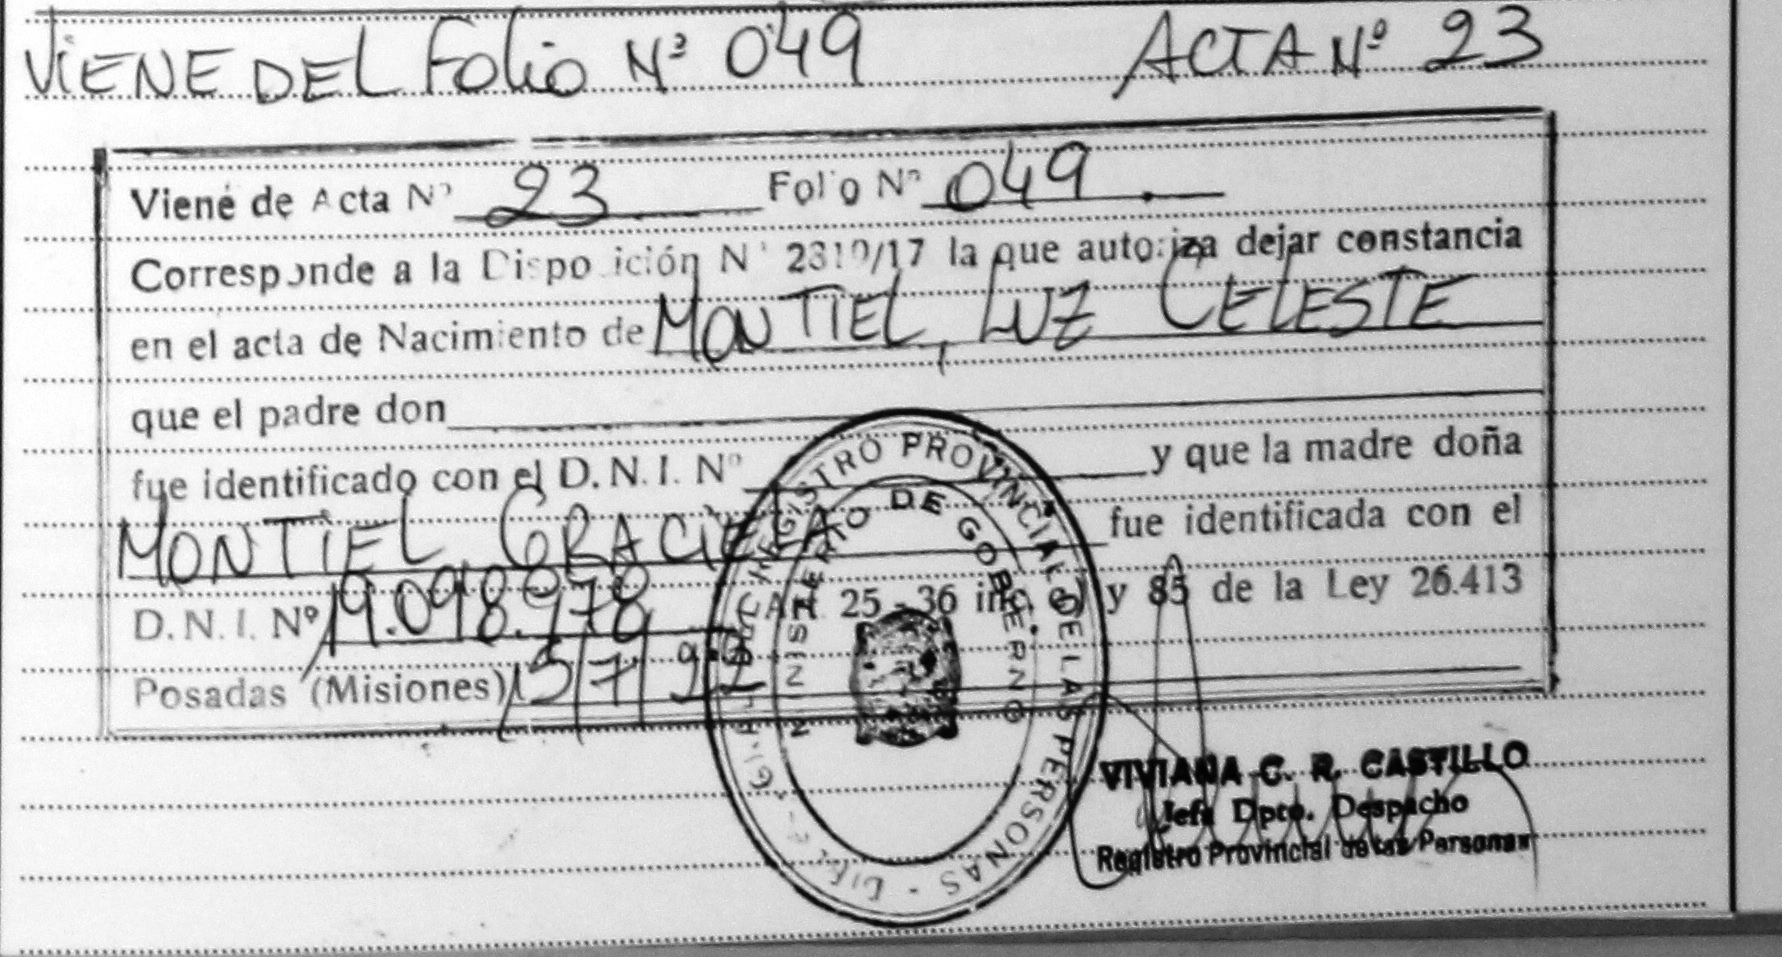 VIENE DEL Folio Nº 049 ACTA Nº 23
Viene de Acta Nº 23 Folio Nº 049
Corresponde a la Disposición Nº 2310/17 la que autoriza dejar constancia
en el acta de Nacimiento de MONTIEL, LUZ CELESTE
que el padre don
fue identificado con el D. N. I. Nº y que la madre doña
MONTIEL, GRACIELA fue identificada con el
D. N. I. Nº 19.098.978 (Art. 25 - 36 inc. c) y 85 de la Ley 26.413
Posadas (Misiones)
REGISTRO PROVINCIAL DE LAS PERSONAS
MINISTERIO DE GOBIERNO
VIVIANA C. R. CASTILLO
Jefa Dpto. Despacho
Registro Provincial de las Personas